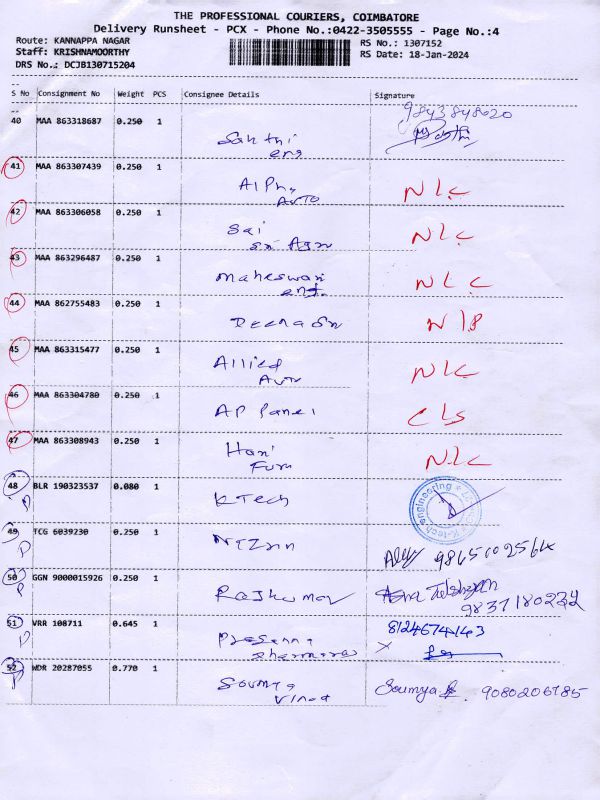 THE PROFESSIONAL COURIERS, COIMBATORE
Delivery Runsheet - PCX - Phone No.:0422-3505555 - Page No.:4
Route: KANNAPPA NAGAR RS No.: 1307152
Staff: KRISHNAMOORTHY RS Date: 18-Jan-2024
DRS No.: DCJB130715204
S No Consignment No Weight PCS Consignee Details Signature
40 MAA 863318687 0.250 1 Sakthi 9843848020
eng
41 MAA 863307439 0.250 1 Alpha NLC
Auto
42 MAA 863306058 0.250 1 Sai NLC
Sri Agro
43 MAA 863296487 0.250 1 Maheswari NLC
ent
44 MAA 862755483 0.250 1 NIB
45 MAA 863315477 0.250 1 Allied NLC
Auto
46 MAA 863304780 0.250 1 AP Panel CLS
47 MAA 863308943 0.250 1 Hari NLC
Furn
48 BLR 190323537 0.080 1 K Tech K-tech engineering
D
49 TCG 6039230 0.250 1 9865102564
D
50 GGN 9000015926 0.250 1 Rajkumar
P 9837180232
51 VRR 108711 0.645 1 Prasanna 8124674163
D
52 WDR 20287055 0.770 1 Soumya Soumya 9080206185
P Vinod